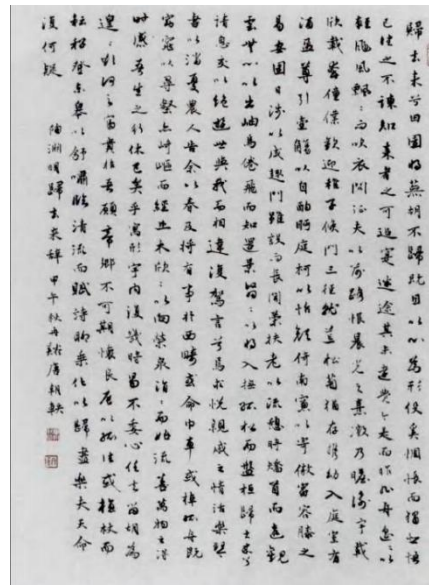 歸去來兮田園將蕪胡不歸既自以心為形役奚惆悵而獨悲悟
已往之不諫知來者之可追寔迷途其未遠覺今是而昨非舟遙遙以
輕颺風飄飄而吹衣問征夫以前路恨晨光之熹微乃瞻衡宇載
欣載奔僮僕歡迎稚子候門三徑就荒松菊猶存攜幼入室有
酒盈尊引壺觴以自酌眄庭柯以怡顏倚南窗以寄傲審容膝之
易安園日涉以成趣門雖設而長關策扶老以流憩時矯首而遐觀
雲無心以出岫鳥倦飛而知還景翳翳以將入撫孤松而盤桓歸去來兮
請息交以絕遊世與我而相違復駕言兮焉求悅親戚之情話樂琴
書以消憂農人告余以春及將有事於西疇或命巾車或棹孤舟既
窈窕以尋壑亦崎嶇而經丘木欣欣以向榮泉涓涓而始流善萬物之得
時感吾生之行休已矣乎寓形宇內復幾時曷不委心任去留胡為
遑遑欲何之富貴非吾願帝鄉不可期懷良辰以孤往或植杖而
耘耔登東皋以舒嘯臨清流而賦詩聊乘化以歸盡樂夫天命
復何疑
陶淵明歸去來辭 甲午秋月 唐朝軼